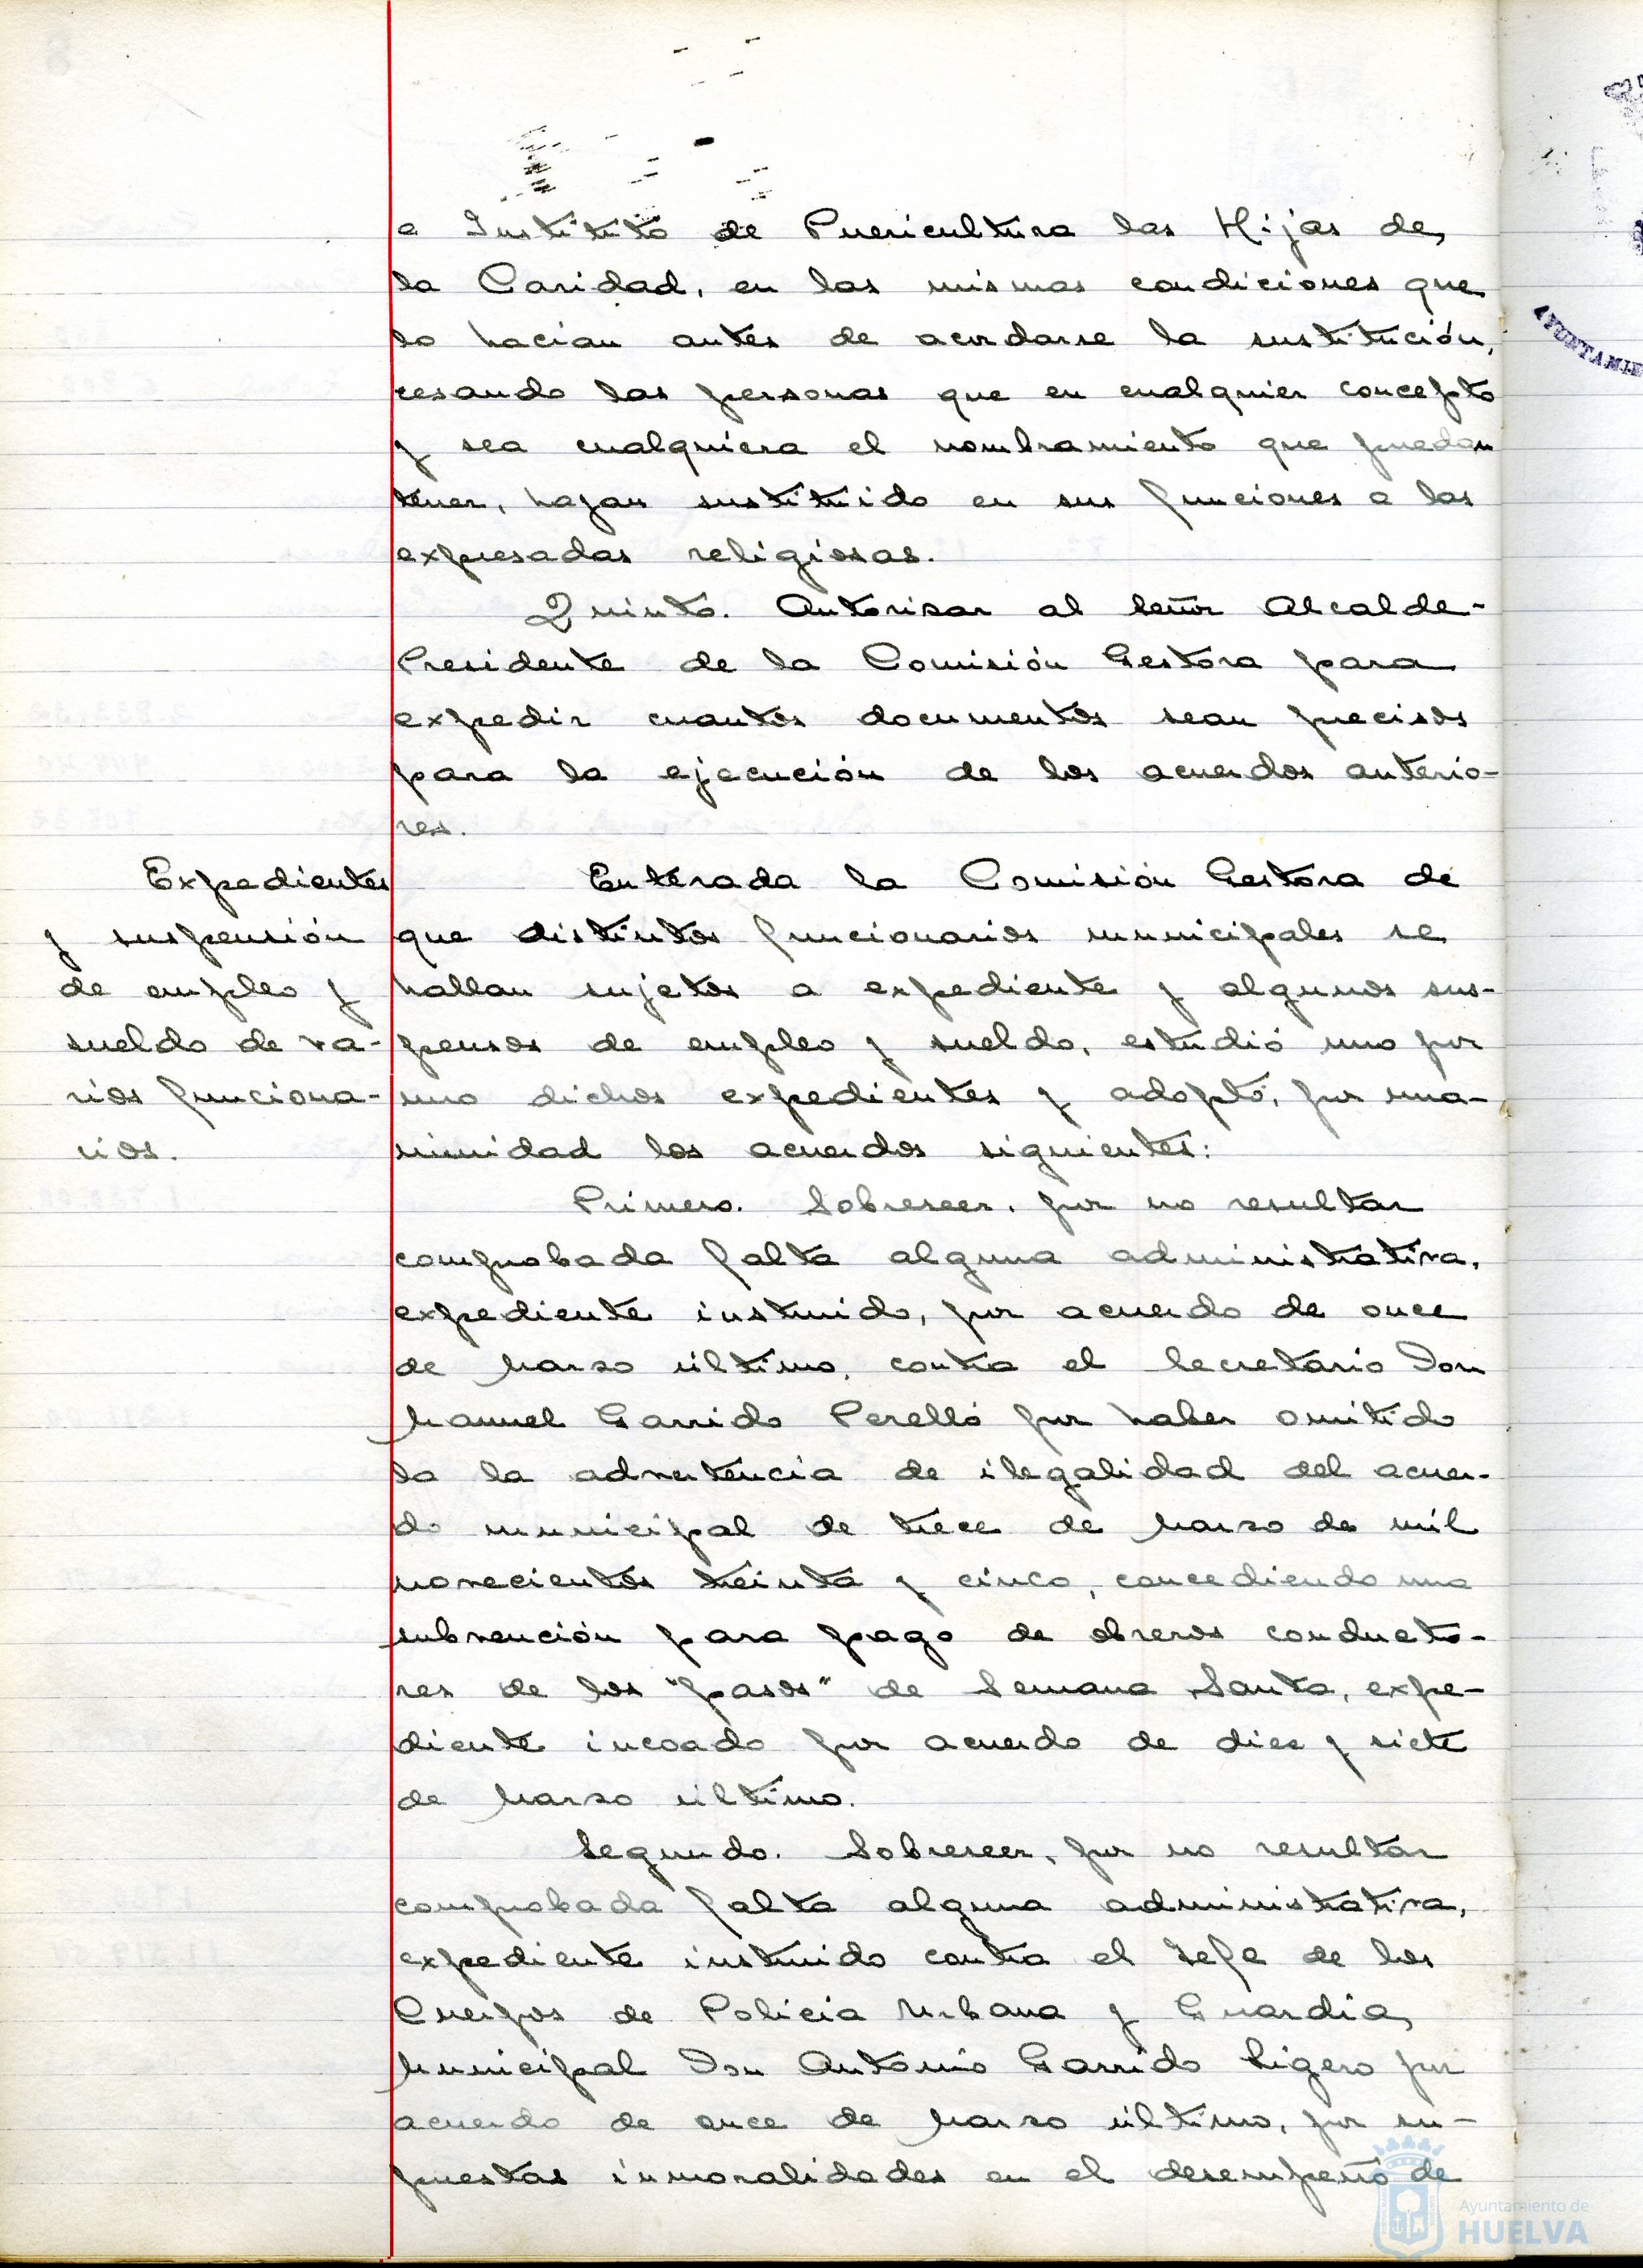 e Instituto de Puericultura las Hijas de
la Caridad, en las mismas condiciones que
lo hacían antes de acordarse la sustitución,
cesando las personas que en cualquier concepto
y sea cualquiera el nombramiento que puedan
tener, hayan sustituido en sus funciones a las
expresadas religiosas.
Quinto. Autorizar al Señor Alcalde-
Presidente de la Comisión Gestora para
expedir cuantos documentos sean precisos
para la ejecución de los acuerdos anterio-
res.
Expedientes
y suspensión
de empleo y
sueldo de va-
rios funciona-
rios.
Enterada la Comisión Gestora de
que distintos funcionarios municipales se
hallan sujetos a expediente y algunos sus-
pensos de empleo y sueldo, estudió uno por
uno dichos expedientes y adoptó, por una-
nimidad los acuerdos siguientes:
Primero. Sobreseer, por no resultar
comprobada falta alguna administrativa,
expediente instruido, por acuerdo de once
de Marzo último, contra el Secretario Don
Manuel Garrido Perelló por haber omitido
la la advertencia de ilegalidad del acuer-
do municipal de trece de Marzo de mil
novecientos treinta y cinco, concediendo una
subvención para pago de obreros conducto-
res de los "pasos" de Semana Santa, expe-
diente incoado por acuerdo de diez y siete
de Marzo último.
Segundo. Sobreseer, por no resultar
comprobada falta alguna administrativa,
expediente instruido contra el Jefe de los
Cuerpos de Policía Urbana y Guardia
Municipal Don Antonio Garrido Ligero por
acuerdo de once de Marzo último, por su-
puestas inmoralidades en el desempeño de
AYUNTAMIE
Ayuntamiento de
HUELVA